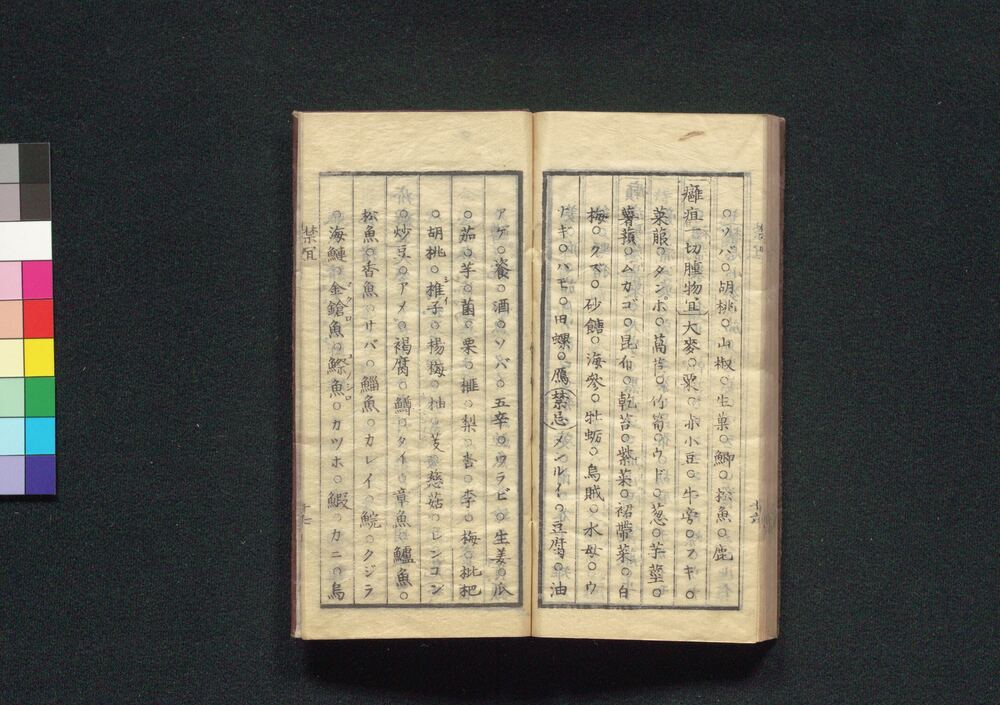 ○ソバ○胡桃○山椒○生菓○鯽○松魚○鹿
癰疽一切腫物宜大麥○粟○赤小豆○牛旁○フキ○
菜菔○タンポ○萵苣○竹筍○ウド○葱○芋莖○
薯蕷○ムカゴ○昆布○乾苔○紫菜○裙帶菜○白
梅○クズ○砂餹○海參○牡蛎○烏賊○水母○ウ
ナギ○ハモ○田螺○鴈禁忌メンルイ○豆腐○油
アゲ○餈○酒○ソバ○五辛○ワラビ○生姜○瓜
○茄○芋○菌○栗○榧○梨○杏○李○梅○枇杷
○胡桃○椎子シイ○楊梅○柚○菱○慈菇○レンコン
○炒豆○アメ○褐腐○鱒○タイ○章魚○鱸魚○
松魚○香魚○サバ○鯔魚○カレイ○鯇○クジラ
○海鰱○金鎗魚マグロ○鰶魚コノシロ○カツホ○鰕○カニ○烏
禁宜
十六
禁宜
十七